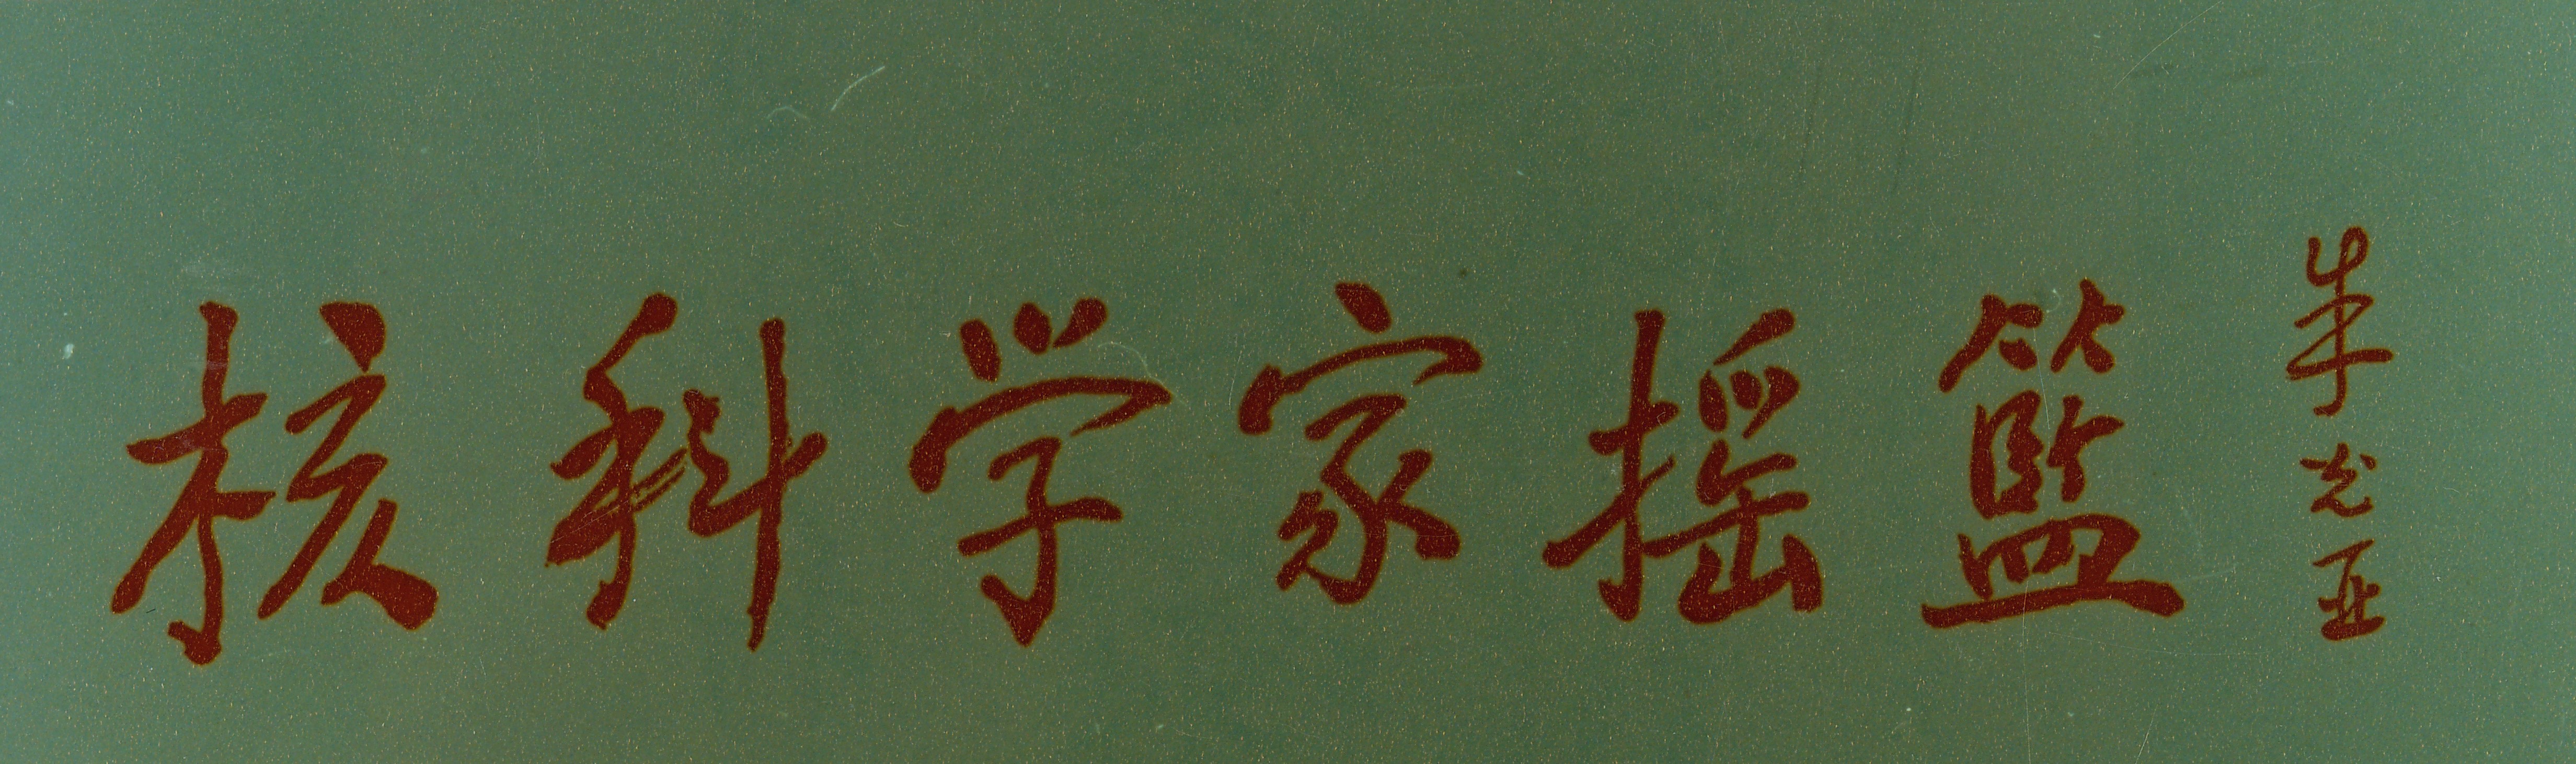 核科学家摇籃
朱光亚